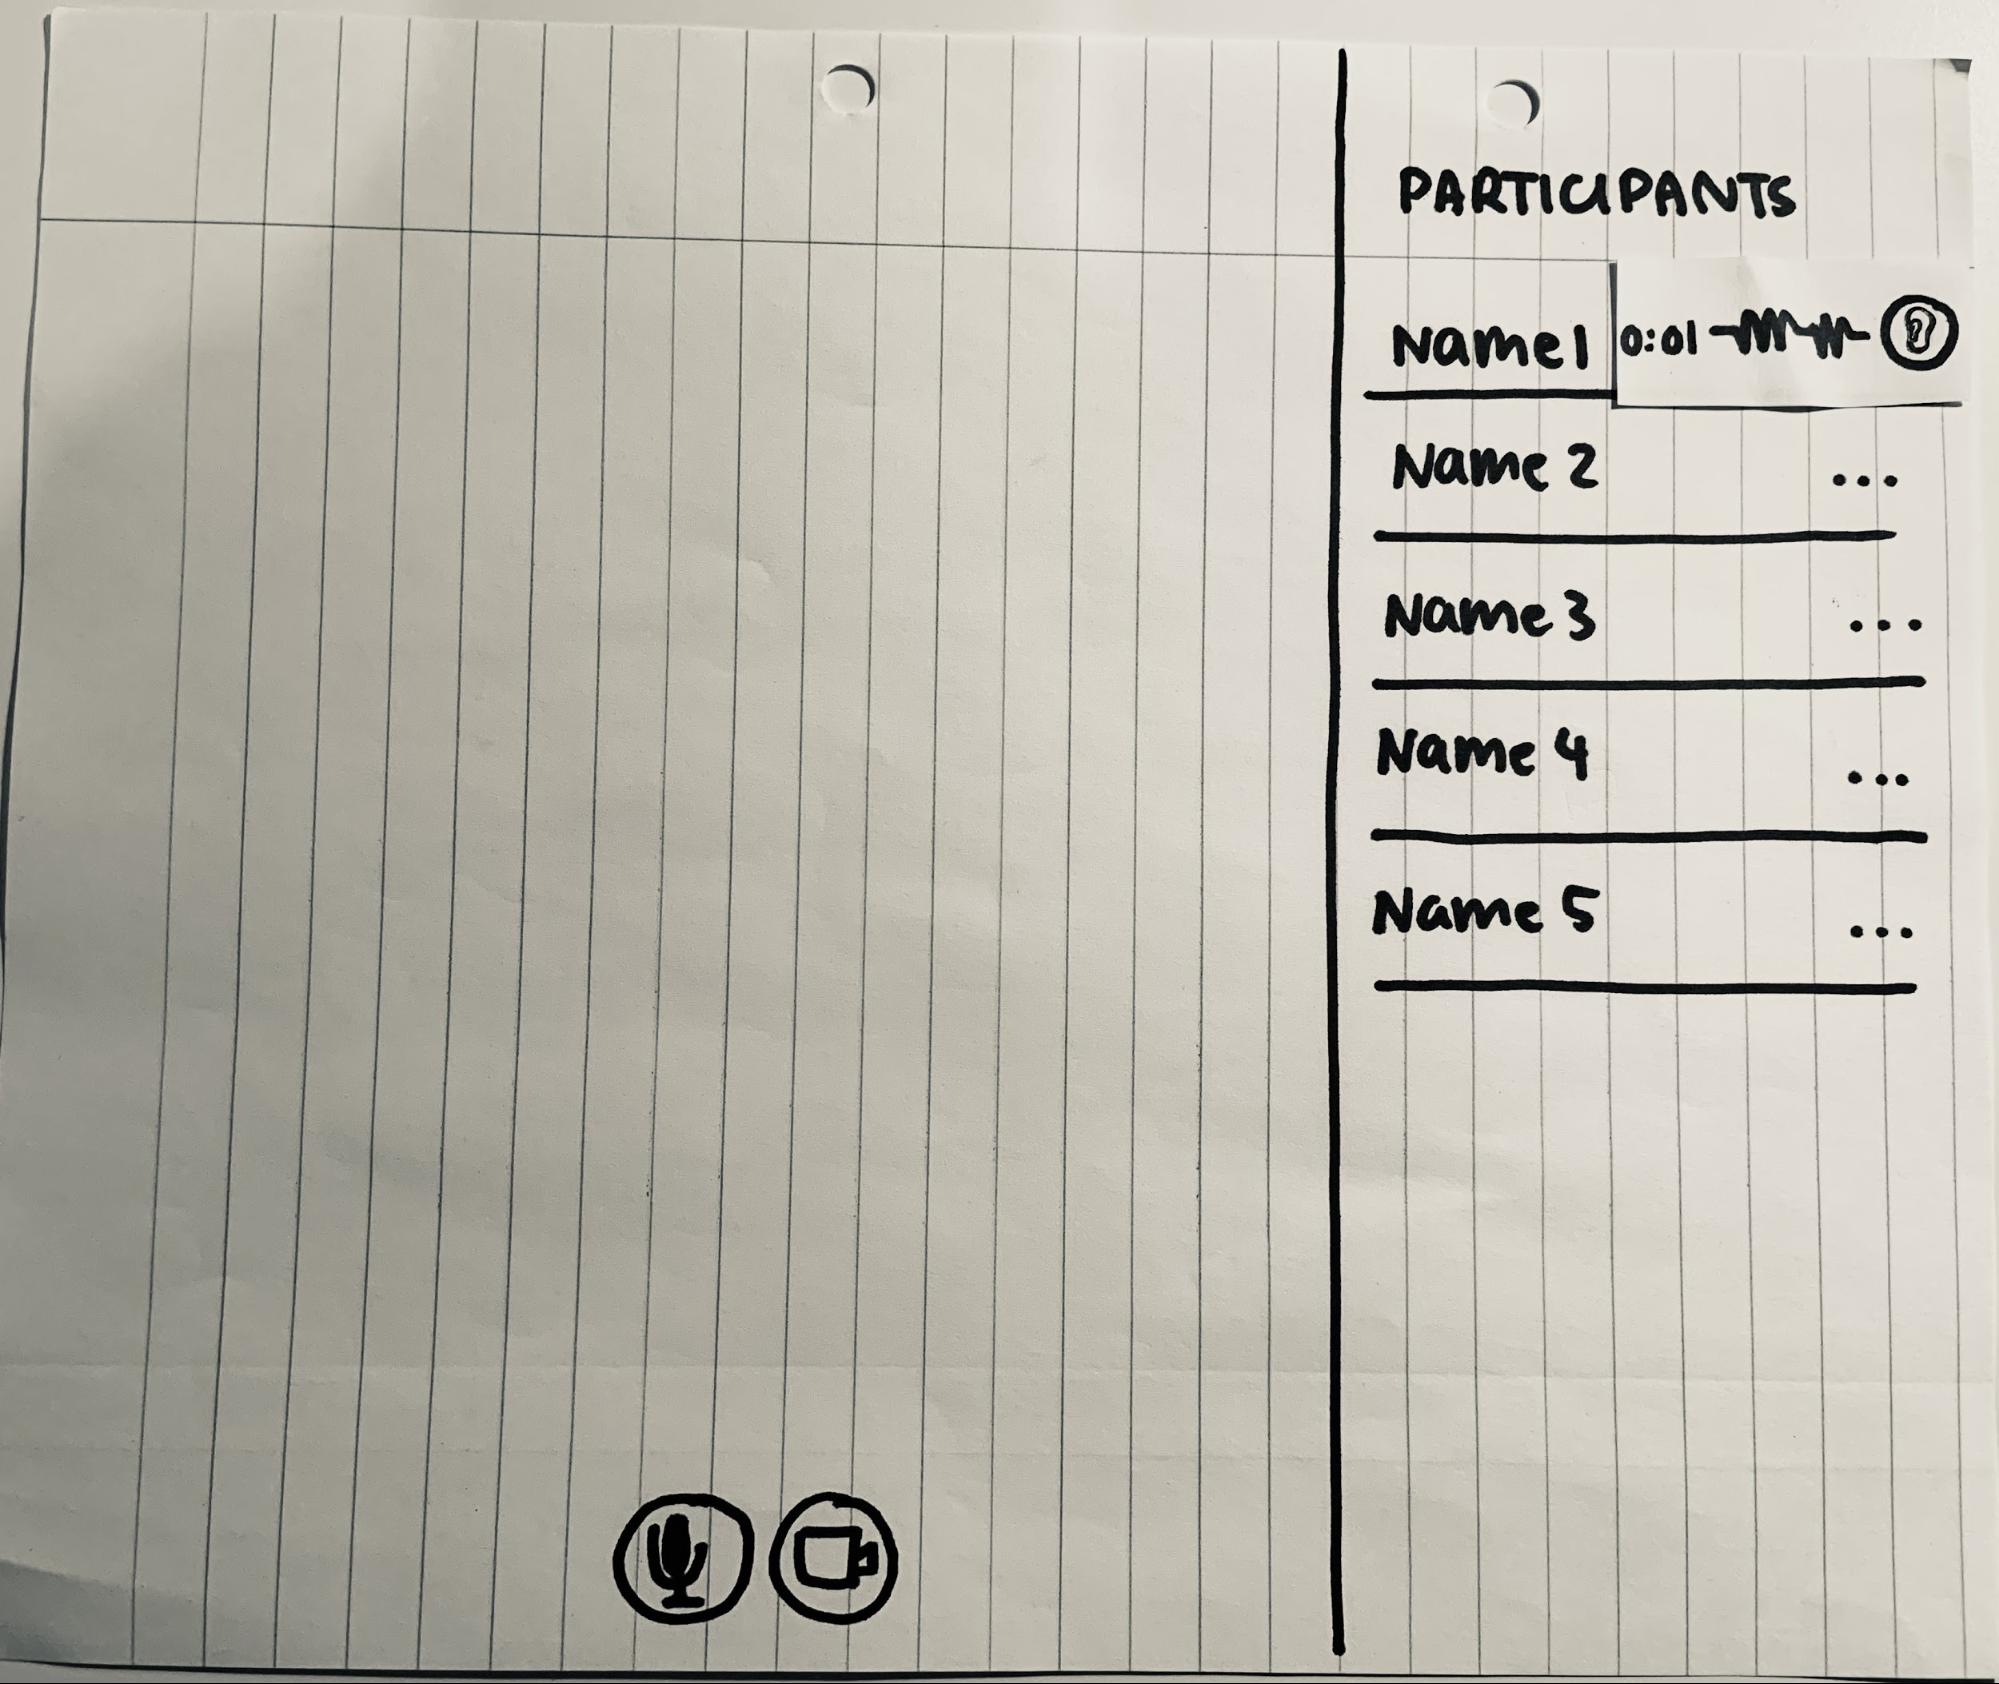 PARTICIPANTS
Name 1 0:01
Name 2 ...
Name 3 ...
Name 4 ...
Name 5 ...